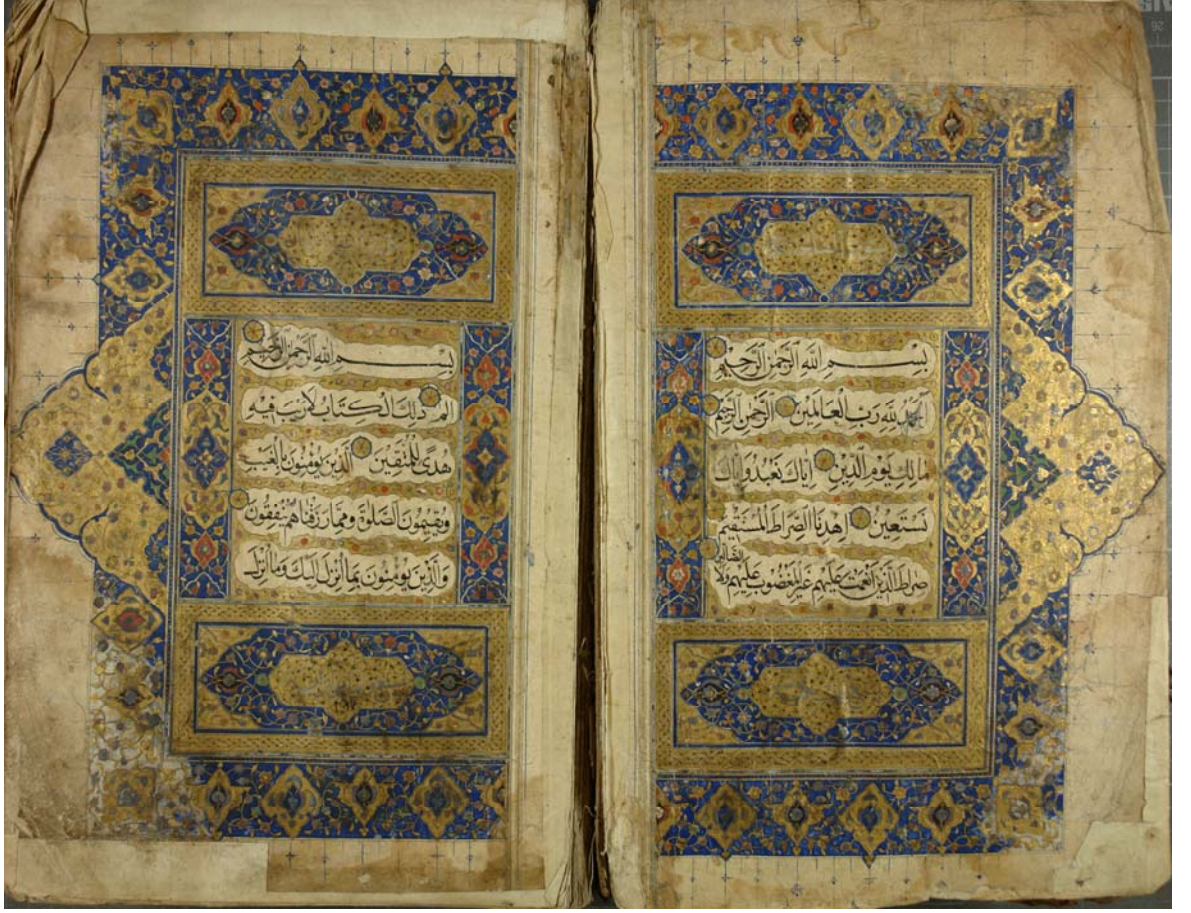 بسم الله الرحمن الرحيم
الحمد لله رب العالمين الرحمن الرحيم
مالك يوم الدين اياك نعبد واياك
نستعين اهدنا الصراط المستقيم
صراط الذين انعمت عليهم غير المغضوب عليهم ولا
الضالين
بسم الله الرحمن الرحيم
الم ذلك الكتاب لا ريب فيه
هدى للمتقين الذين يؤمنون بالغيب
ويقيمون الصلوة ومما رزقناهم ينفقون
والذين يؤمنون بما انزل اليك وما انزل